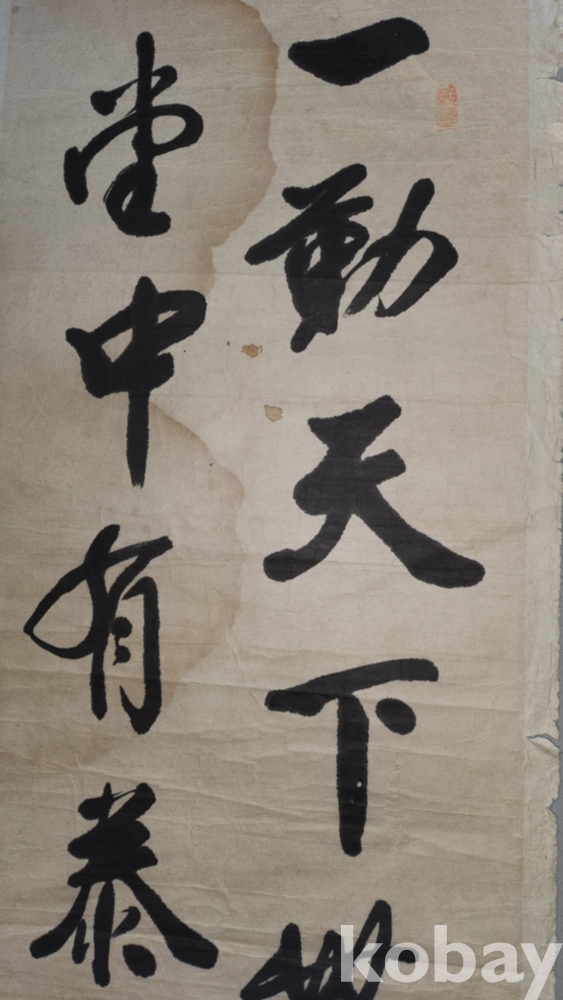 一勤天下
堂中有泰
kobay